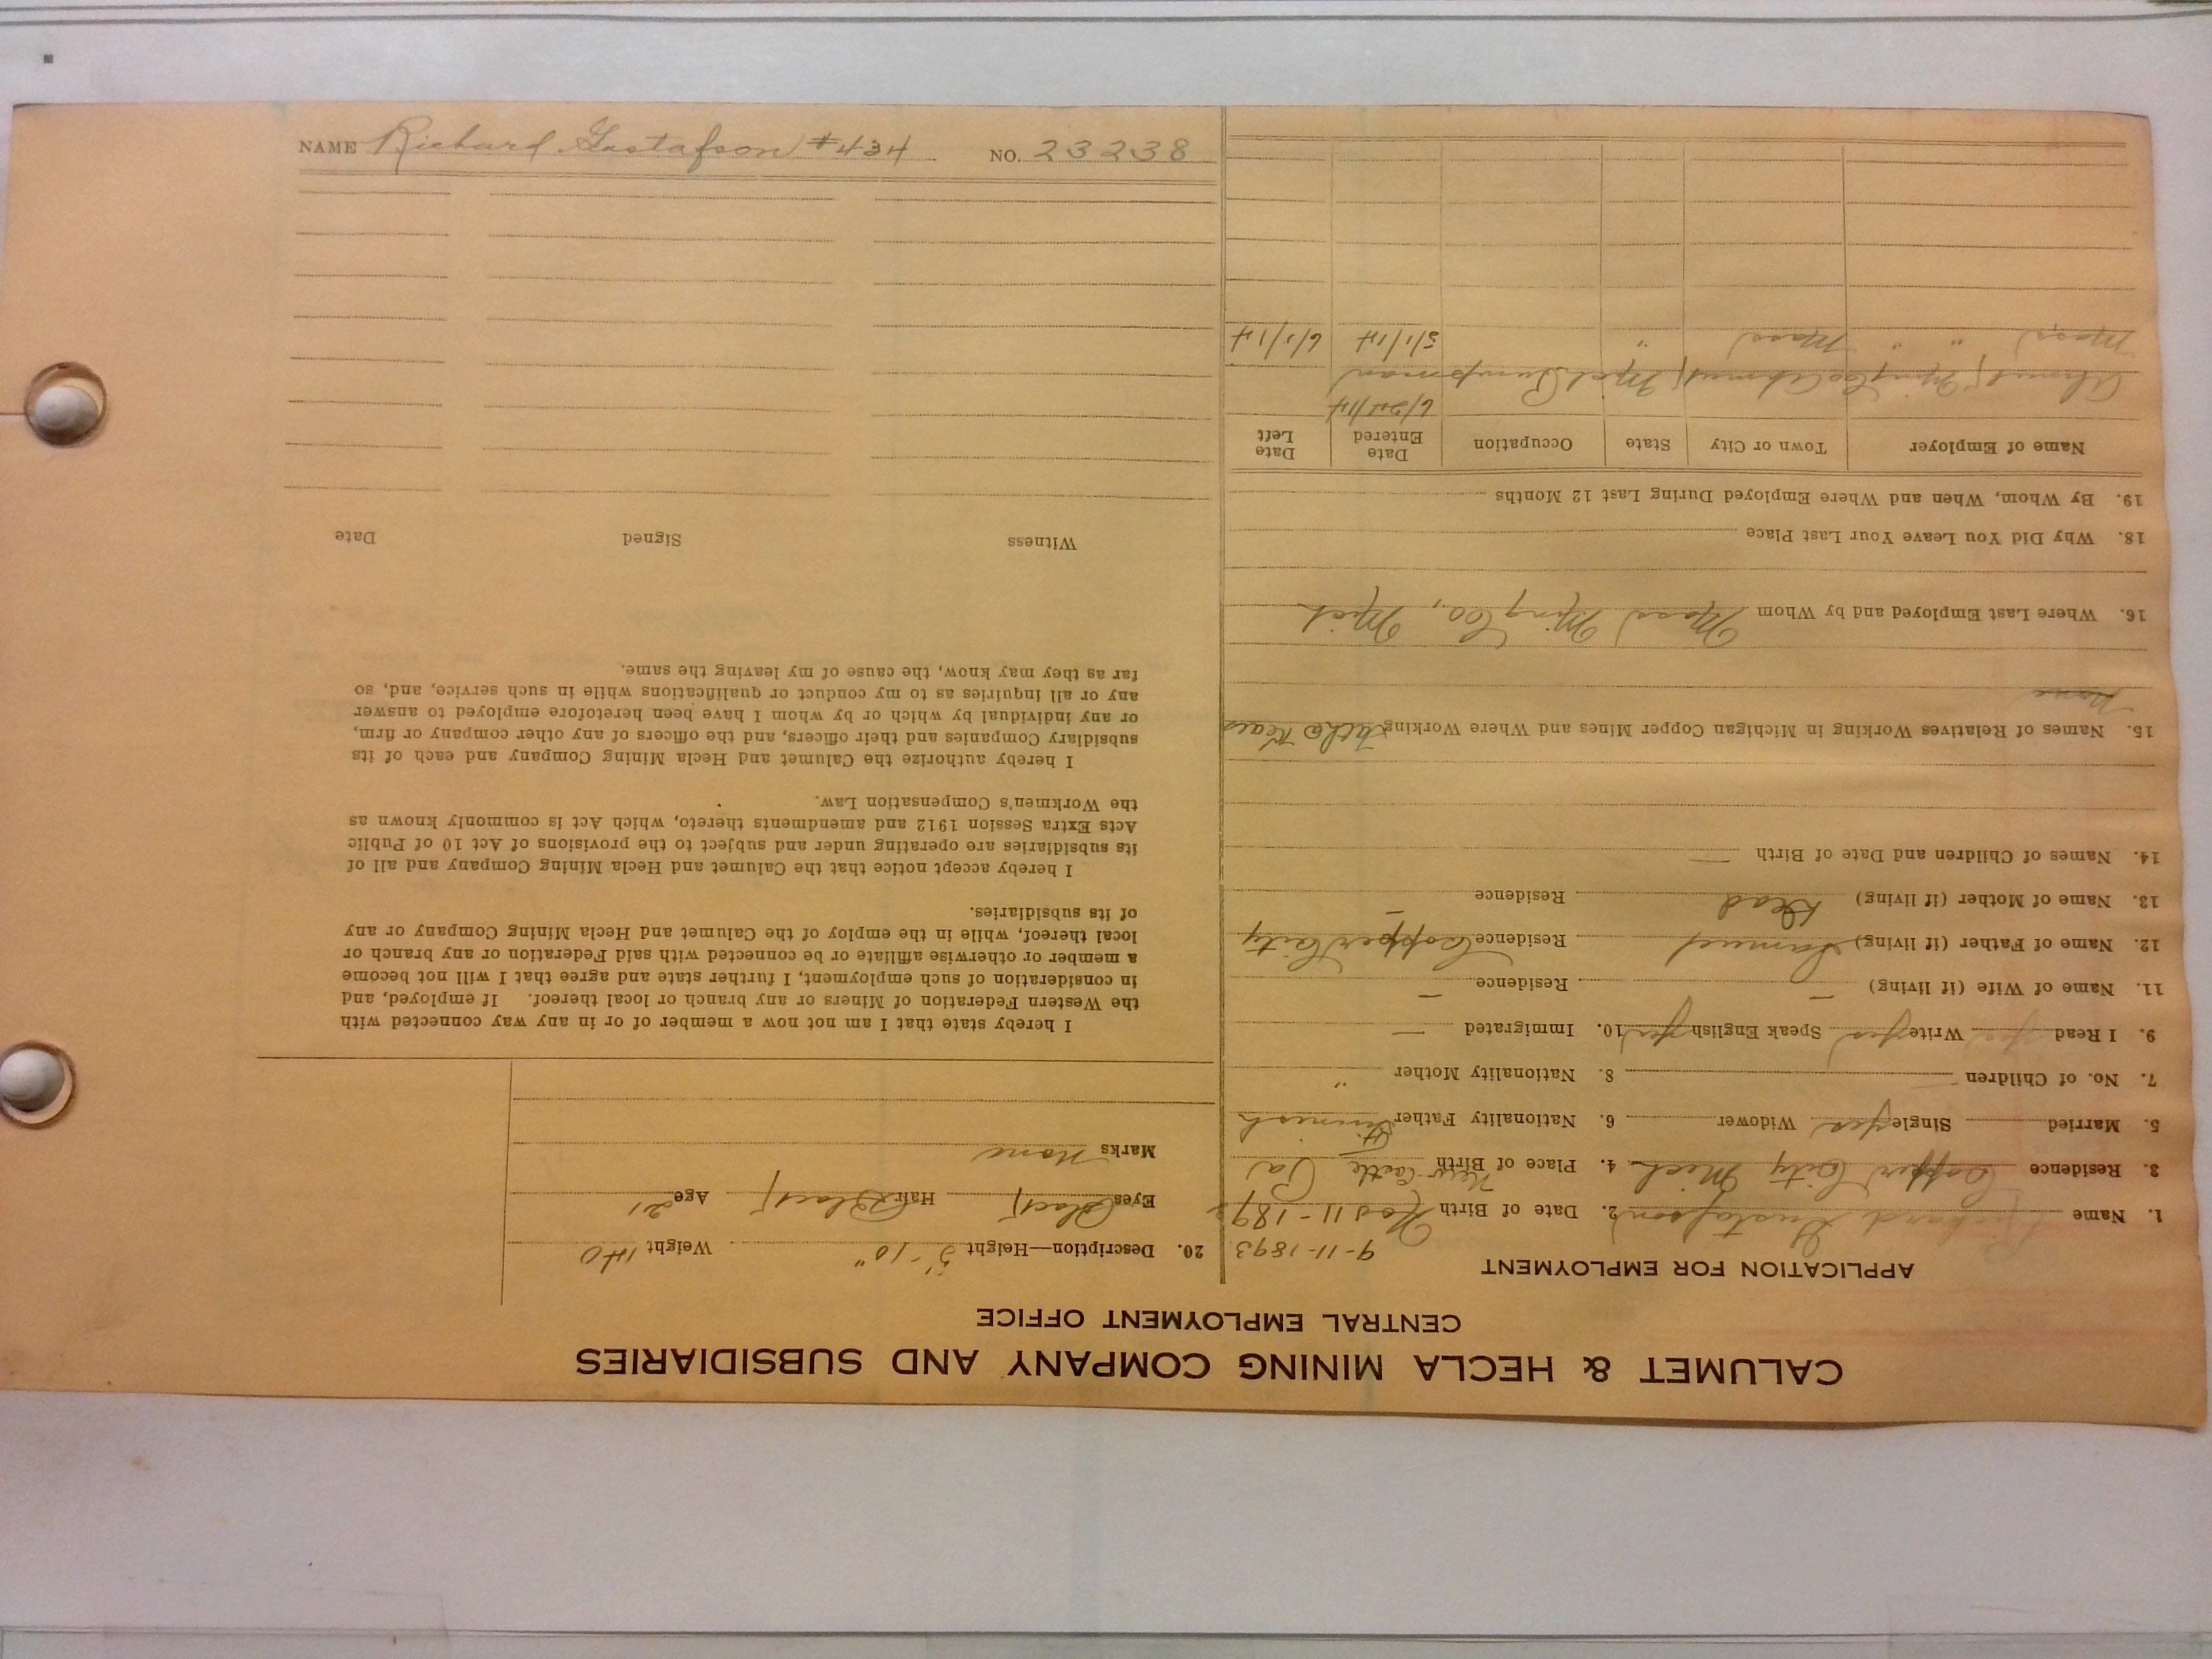 CALUMET & HECLA MINING COMPANY AND SUBSIDIARIES
CENTRAL EMPLOYMENT OFFICE
APPLICATION FOR EMPLOYMENT
9-11-1893
1. Name Richard Gustafson 2. Date of Birth Nov 11-189
3. Residence Copper City Mich 4. Place of Birth New Castle Pa
5. Married Single yes Widower 6. Nationality Father Finnish
7. No. of Children — 8. Nationality Mother "
9. I Read yes Write yes Speak English yes 10. Immigrated —
11. Name of Wife (if living) — Residence —
12. Name of Father (if living) Samuel Residence Copper City
13. Name of Mother (if living) Dead Residence —
14. Names of Children and Date of Birth —
15. Names of Relatives Working in Michigan Copper Mines and Where Working
None
16. Where Last Employed and by Whom Mass Ming Co, Mich
18. Why Did You Leave Your Last Place
19. By Whom, When and Where Employed During Last 12 Months
Name of Employer Town or City State Occupation Date Entered Date Left
Ahmeek Ming Co Ahmeek Mich Pumpman
Mass " " Mass " 5/1/14 6/1/14
20. Description—Height 5'-10" Weight 140
Eyes Black Hair Black Age 21
Marks None
I hereby state that I am not now a member of or in any way connected with
the Western Federation of Miners or any branch or local thereof. If employed, and
in consideration of such employment, I further state and agree that I will not become
a member or otherwise affiliate or be connected with said Federation or any branch or
local thereof, while in the employ of the Calumet and Hecla Mining Company or any
of its subsidiaries.
I hereby accept notice that the Calumet and Hecla Mining Company and all of
its subsidiaries are operating under and subject to the provisions of Act 10 of Public
Acts Extra Session 1912 and amendments thereto, which Act is commonly known as
the Workmen's Compensation Law.
I hereby authorize the Calumet and Hecla Mining Company and each of its
subsidiary Companies and their officers, and the officers of any other company or firm,
or any individual by which or by whom I have been heretofore employed to answer
any or all inquiries as to my conduct or qualifications while in such service, and, so
far as they may know, the cause of my leaving the same.
Witness Signed Date
NAME Richard Gustafson #434 NO. 23238